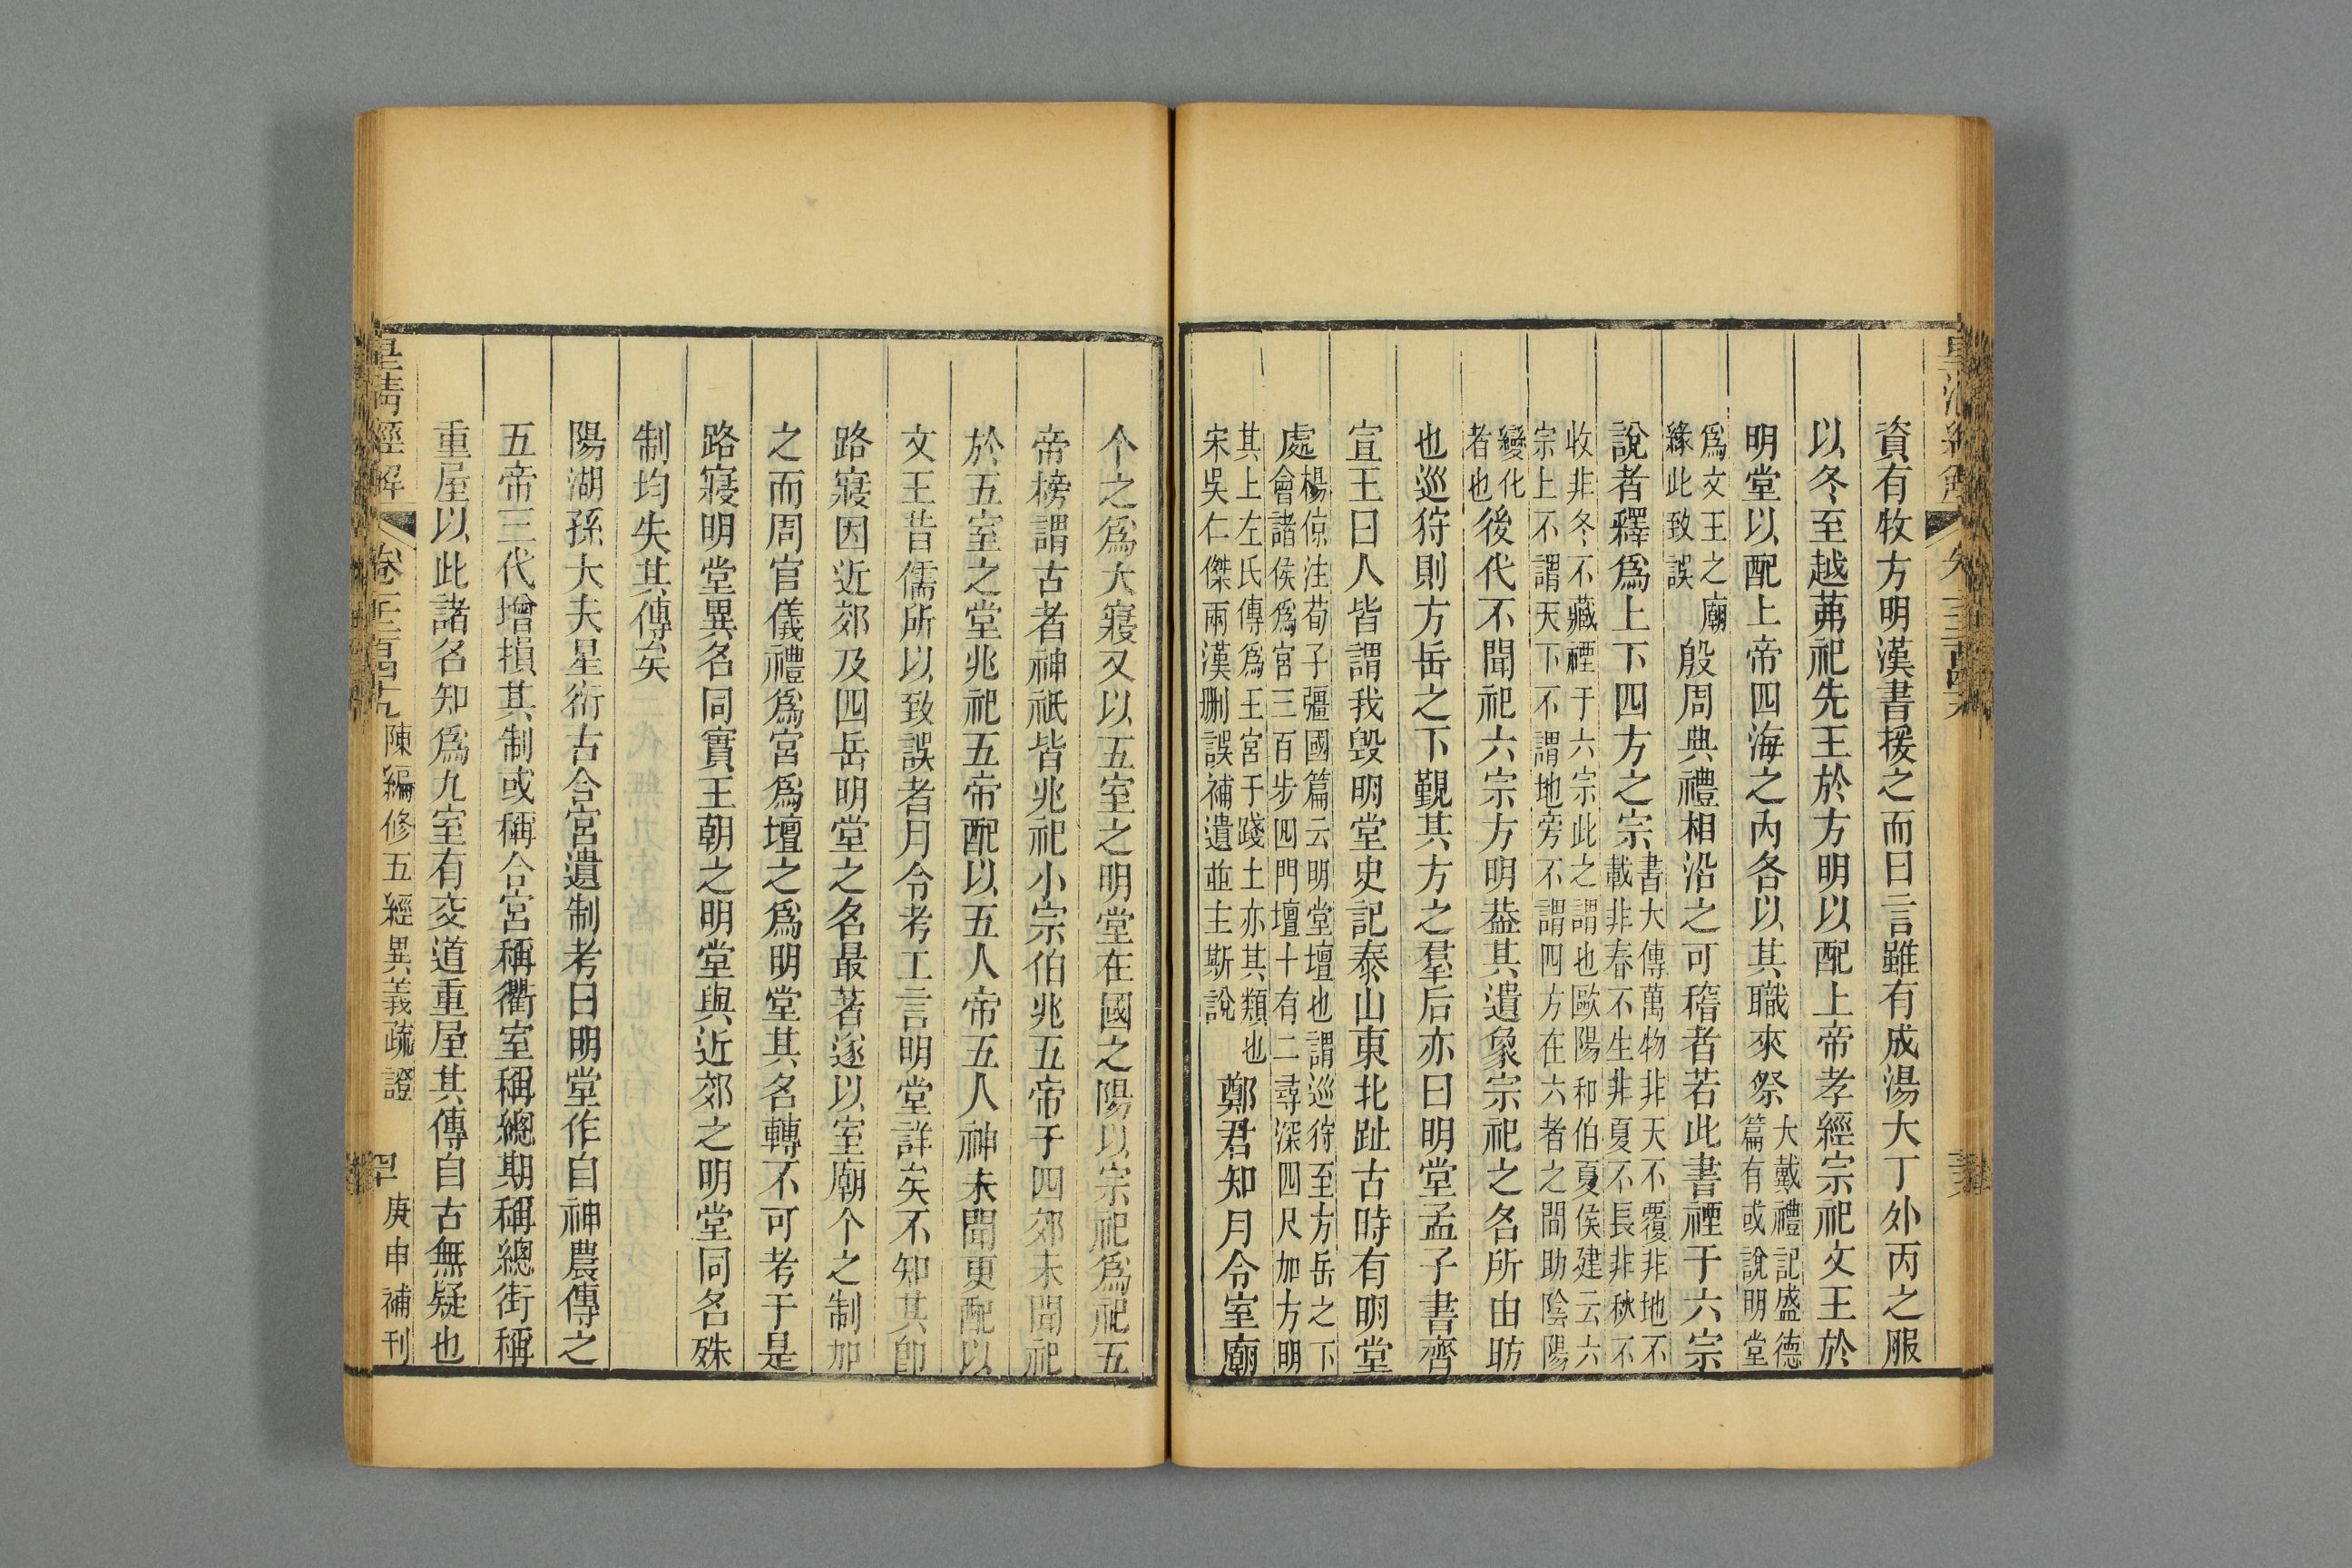 資有牧方明漢書援之而曰言雖有成湯大丁外丙之服
以冬至越茀祀先王於方明以配上帝孝經宗祀文王於
明堂以配上帝四海之內各以其職來祭大戴禮記盛德篇有或說明堂
爲文王之廟緣此致誤殷周典禮相沿之可稽者若此書禋于六宗
說者釋爲上下四方之宗書大傳萬物非天不覆非地不載非春不生非夏不長非秋不
收非冬不藏禋于六宗此之謂也歐陽和伯夏侯建云六宗上不謂天下不謂地旁不謂四方在六者之間助陰陽
變化者也後代不聞祀六宗方明葢其遺象宗祀之名所由昉
也巡狩則方岳之下覲其方之羣后亦曰明堂孟子書齊
宣王曰人皆謂我毀明堂史記泰山東北趾古時有明堂
處楊倞注荀子彊國篇云明堂壇也謂巡狩至方岳之下會諸侯爲宮三百步四門壇十有二尋深四尺加方明
其上左氏傳爲王宮于踐土亦其類也宋吳仁傑兩漢刪誤補遺並主斯說鄭君知月令室廟
个之爲大寢又以五室之明堂在國之陽以宗祀爲祀五
帝榜謂古者神祇皆兆祀小宗伯兆五帝于四郊未聞祀
於五室之堂兆祀五帝配以五人帝五人神未聞更配以
文王昔儒所以致誤者月令考工言明堂詳矣不知其卽
路寢因近郊及四岳明堂之名最著遂以室廟个之制加
之而周官儀禮爲宮爲壇之爲明堂其名轉不可考于是
路寢明堂異名同實王朝之明堂與近郊之明堂同名殊
制均失其傳矣
陽湖孫大夫星衍古合宮遺制考曰明堂作自神農傳之
五帝三代增損其制或稱合宮稱衢室稱總期稱總街稱
重屋以此諸名知爲九室有交道重屋其傳自古無疑也
皇清經解 卷三百四十九 陳編修五經異義疏證 庚申補刊